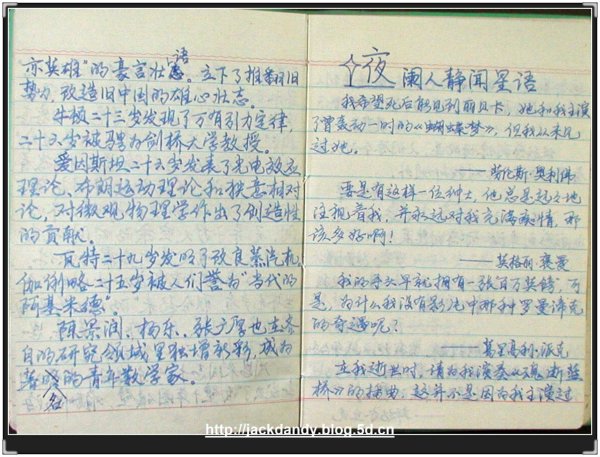 亦英雄"的豪言壮语。立下了推翻旧
势力,改造旧中国的雄心壮志。
牛顿二十三岁发现了万有引力定律,
二十六岁被聘为剑桥大学教授。
爱因斯坦二十六岁发表了光电效应
理论,布朗运动理论和狭义相对
论,对微观物理学作出了创造性
的贡献。
瓦特二十九岁发明了改良蒸汽机,
伽俐略二十五岁被人们誉为"当代的
阿基米德"。
陈景润、杨乐、张广厚也在各
自的研究领域里独增新彩,成为
著名的青年数学家。
夜阑人静闻星语
我希望死后能见到丽贝卡,她和我主演
了曾轰动一时的《蝴蝶梦》,但我从未见
过她。
劳伦斯·奥利佛
要是有这样一位绅士,他总是远远地
注视着我,并永远对我充满痴情,那
该多好啊!
——英格丽·褒曼
我的手头早就拥有一张百万英镑,可
是,为什么我没有影片中那种罗曼谛克
的奇遇呢?
——葛里高利·派克
在我逝世时,请为我演奏《魂断蓝
桥》的插曲,这并不是因为我主演过
http://jackdandy.blog.5d.cn